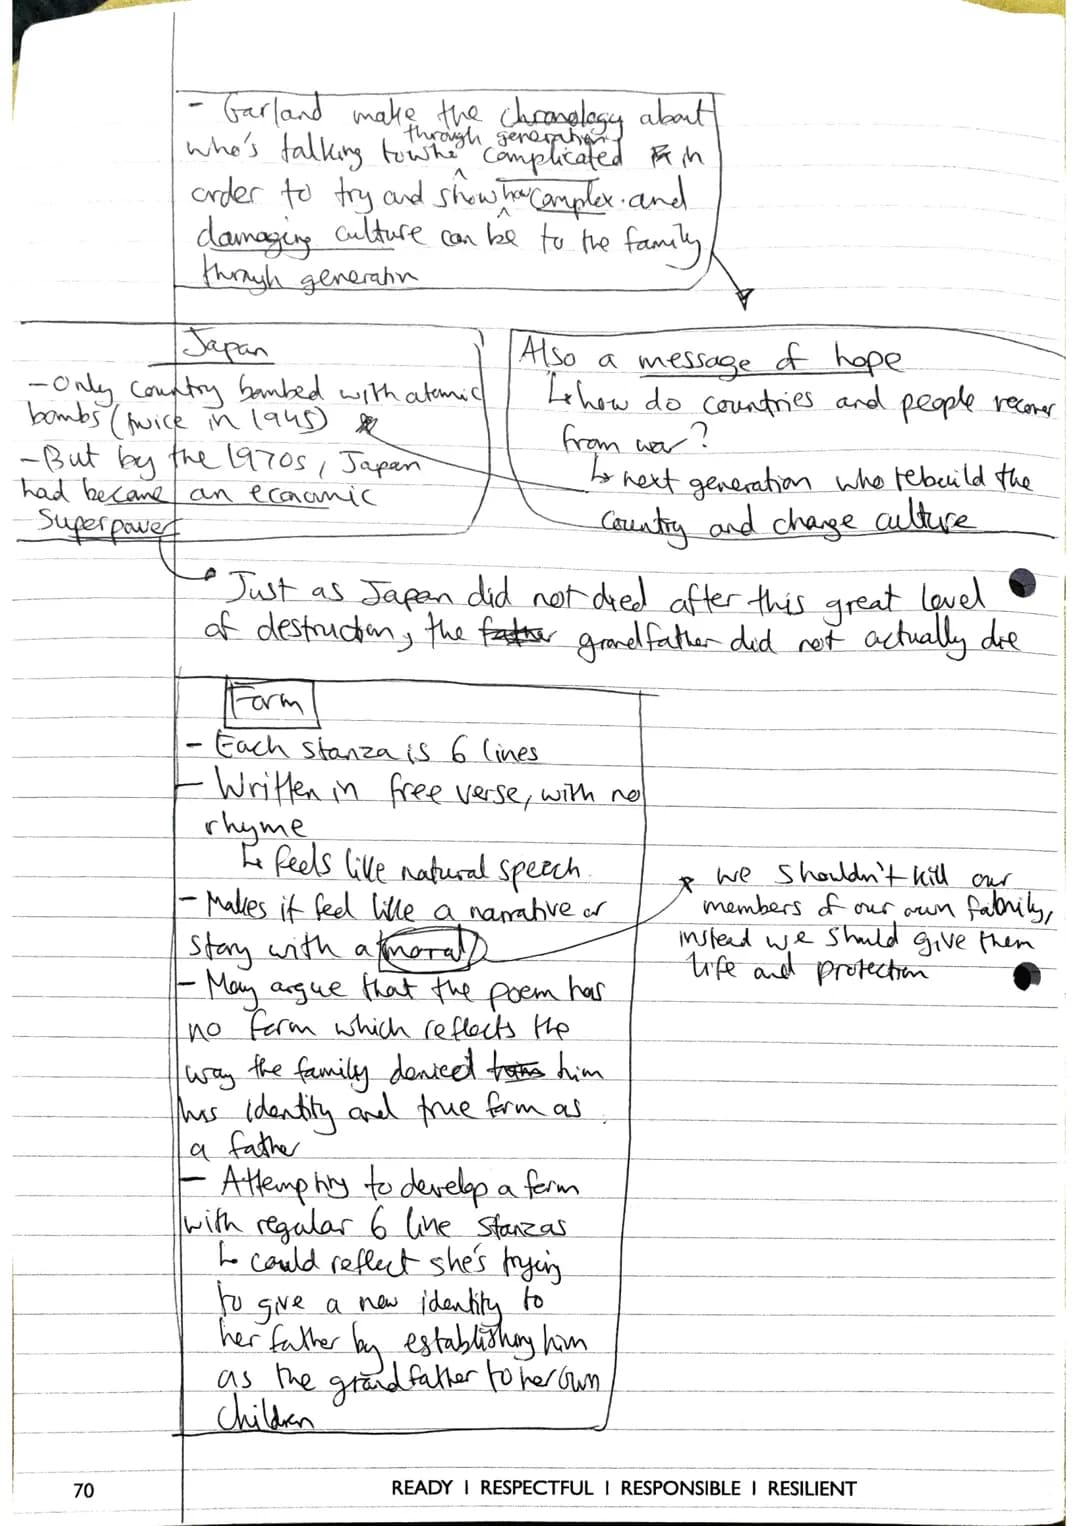 - Garland make the chronology about
through generation
who's talking to who complicated in
order to try and show how complex and
damaging culture can be to the family
through generation
Japan
- Only country bombed with atomic
bombs (twice in 1945)
- But by the 1970s, Japan
had became an economic
superpower
Also a message of hope
↳ how do countries and people recover
from war?
↳ next generation who rebuild the
country and change culture
Just as Japan did not died after this great level
of destruction, the father grandfather did not actually die
Form
- Each stanza is 6 lines
- Written in free verse, with no
rhyme
↳ feels like natural speech.
- Makes it feel like a narrative or
story with a moral
we shouldn't kill our
members of our own family,
instead we should give them
life and protection
- May argue that the poem has
no form which reflects the
way the family denied him
his identity and true form as
a father
- Attempting to develop a form
with regular 6 line stanzas
↳ could reflect she's trying
to give a new identity to
her father by establishing him
as the grandfather to her own
children
70
READY | RESPECTFUL | RESPONSIBLE | RESILIENT